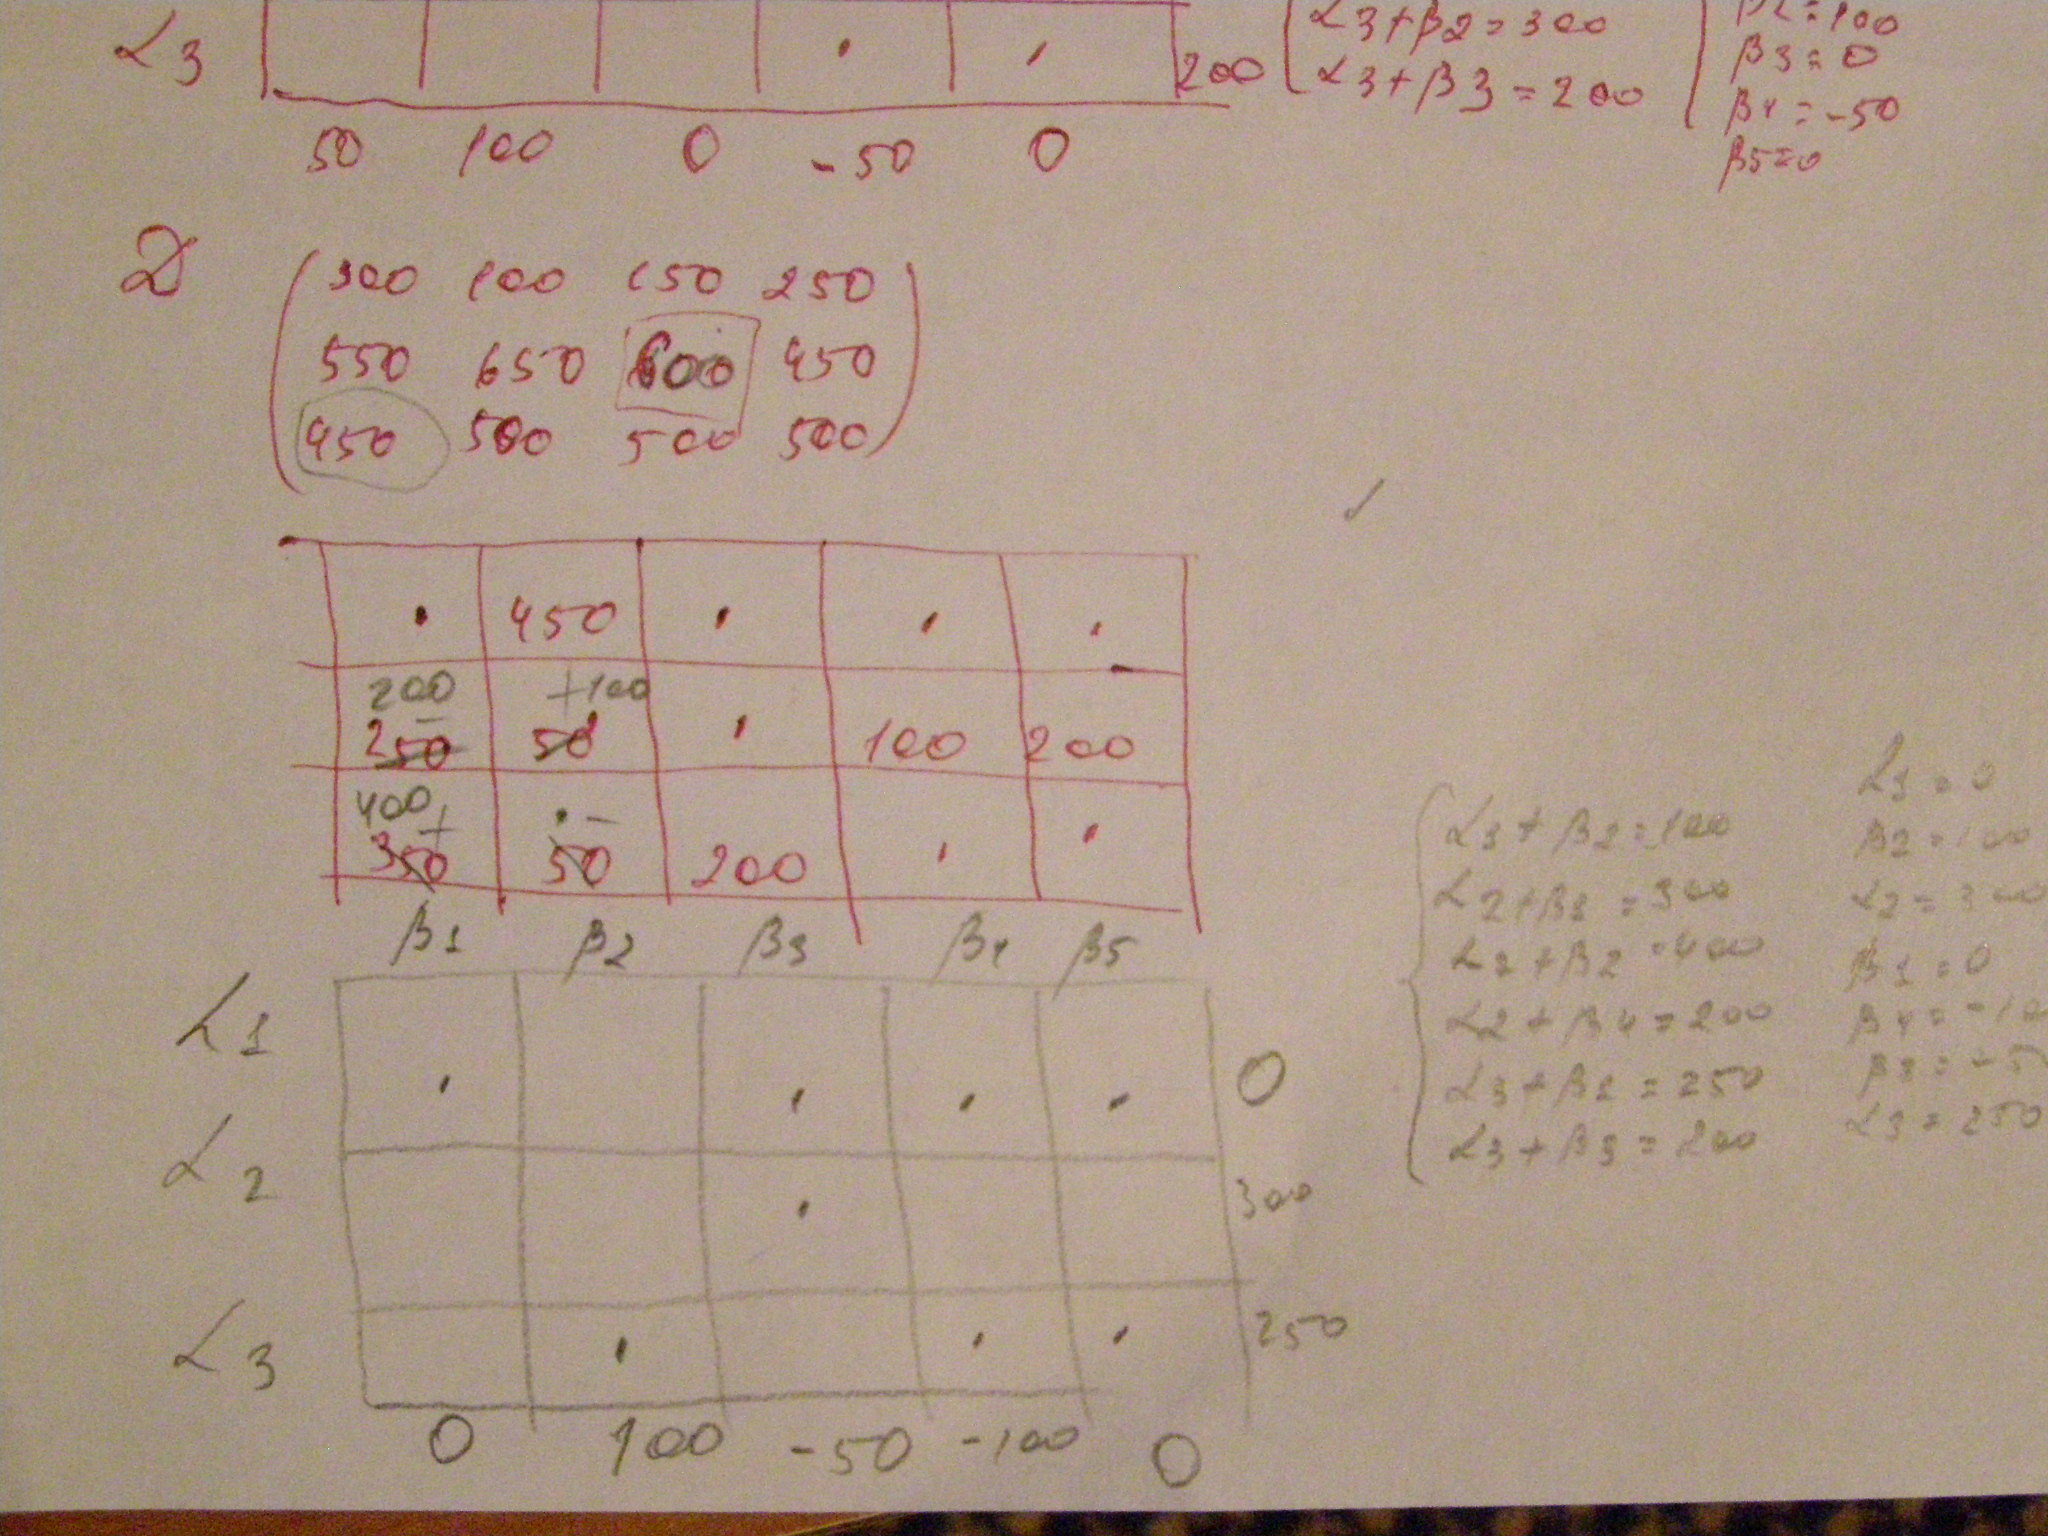 α3 . . 200
50 100 0 -50 0
α3+β2=300
α3+β3=200
β2=100
β3=0
β4=-50
β5=0
D
300 100 150 250
550 650 600 450
450 500 500 500
. 450 . . .
200 - +100
250 50 . 100 200
400 + . -
350 50 200 . .
β1 β2 β3 β4 β5
α1 . . . . 0
α2 . 300
α3 . . . 250
0 100 -50 -100 0
α1+β2=100
α2+β1=300
α2+β2=400
α2+β4=200
α3+β2=250
α3+β3=200
α1=0
β2=100
α2=300
β1=0
β4=-10
α3=250